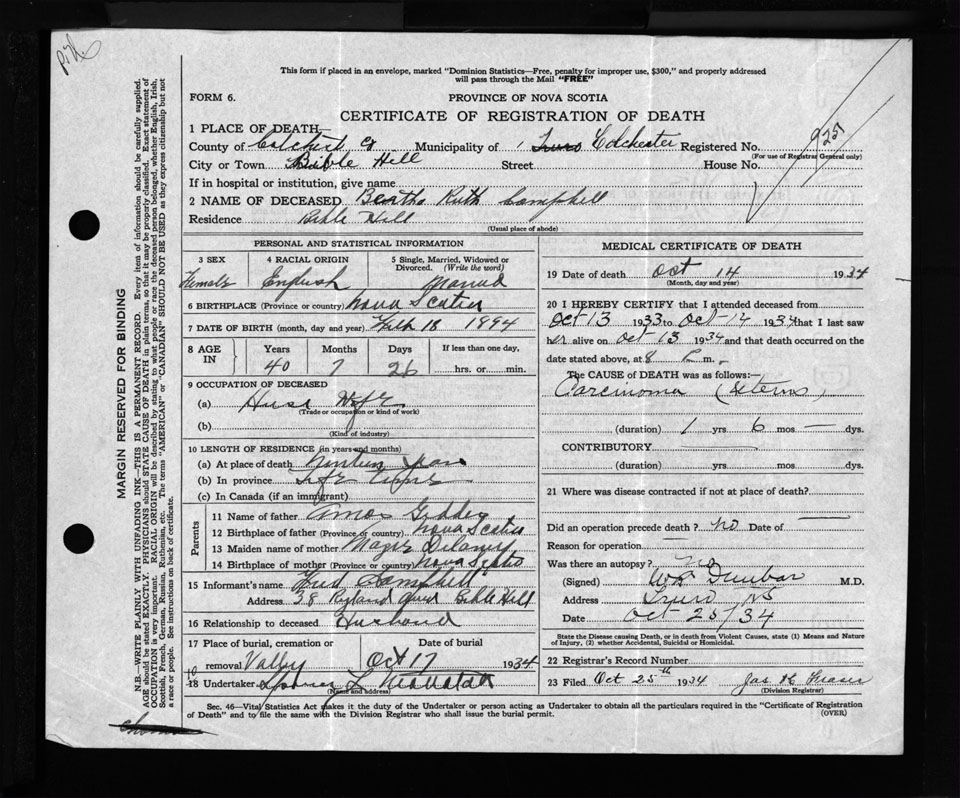 This form if placed in an envelope, marked "Dominion Statistics—Free, penalty for improper use, $300," and properly addressed
will pass through the Mail "FREE"
FORM 6.
PROVINCE OF NOVA SCOTIA
CERTIFICATE OF REGISTRATION OF DEATH
1 PLACE OF DEATH
County of Municipality of Colchester Registered No.
(For use of Registrar General only)
City or Town Bible Hill Street House No.
If in hospital or institution, give name
2 NAME OF DECEASED Bertha Ruth Campbell
Residence Bible Hill
(Usual place of abode)
PERSONAL AND STATISTICAL INFORMATION
3 SEX
Female
4 RACIAL ORIGIN
English
5 Single, Married, Widowed or
Divorced. (Write the word)
Married
6 BIRTHPLACE (Province or country) Nova Scotia
7 DATE OF BIRTH (month, day and year) Feb 18 1894
8 AGE IN
Years Months Days If less than one day,
40 7 26 hrs. or min.
9 OCCUPATION OF DECEASED
(a) House Wife
(Trade or occupation or kind of work)
(b)
(Kind of industry)
10 LENGTH OF RESIDENCE (in years and months)
(a) At place of death
(b) In province Life Time
(c) In Canada (if an immigrant)
Parents
11 Name of father Amos Geddes
12 Birthplace of father (Province or country) Nova Scotia
13 Maiden name of mother Delaney
14 Birthplace of mother (Province or country) Nova Scotia
15 Informant's name Fred Campbell
Address 38 Bible Hill
16 Relationship to deceased Husband
17 Place of burial, cremation or removal Valley
Date of burial
Oct 17 1934
18 Undertaker
(Name and address)
MEDICAL CERTIFICATE OF DEATH
19 Date of death Oct 14 1934
(Month, day and year)
20 I HEREBY CERTIFY that I attended deceased from
Oct 13 1933 to Oct 14 1934 that I last saw
her alive on Oct 13 1934 and that death occurred on the
date stated above, at 8 P m.
The CAUSE of DEATH was as follows:
Carcinoma (Uterus)
(duration) 1 yrs 6 mos — dys.
CONTRIBUTORY
(duration) yrs. mos. dys.
21 Where was disease contracted if not at place of death?
Did an operation precede death? no Date of —
Reason for operation —
Was there an autopsy? no
(Signed) Dunbar M.D.
Address Truro NS
Date Oct 25/34
State the Disease causing Death, or in death from Violent Causes, state (1) Means and Nature
of Injury, (2) whether Accidental, Suicidal or Homicidal.
22 Registrar's Record Number
23 Filed Oct 25th 1934 Jas Fraser
(Division Registrar)
Sec. 46—Vital Statistics Act makes it the duty of the Undertaker or person acting as Undertaker to obtain all the particulars required in the "Certificate of Registration
of Death" and to file the same with the Division Registrar who shall issue the burial permit.
(OVER)
MARGIN RESERVED FOR BINDING
N.B.—WRITE PLAINLY WITH UNFADING INK—THIS IS A PERMANENT RECORD. Every item of information should be carefully supplied.
AGE should be stated EXACTLY. PHYSICIANS should STATE CAUSE OF DEATH in plain terms, so that it may be properly classified. Exact statement of
OCCUPATION is very important. RACIAL ORIGIN will be described by stating to what people or race the deceased person belonged, whether English, Irish,
Scottish, French, German, Russian, Ruthenian, etc. The terms "AMERICAN" or "CANADIAN" SHOULD NOT BE USED as they express citizenship but not
a race or people. See instructions on back of certificate.